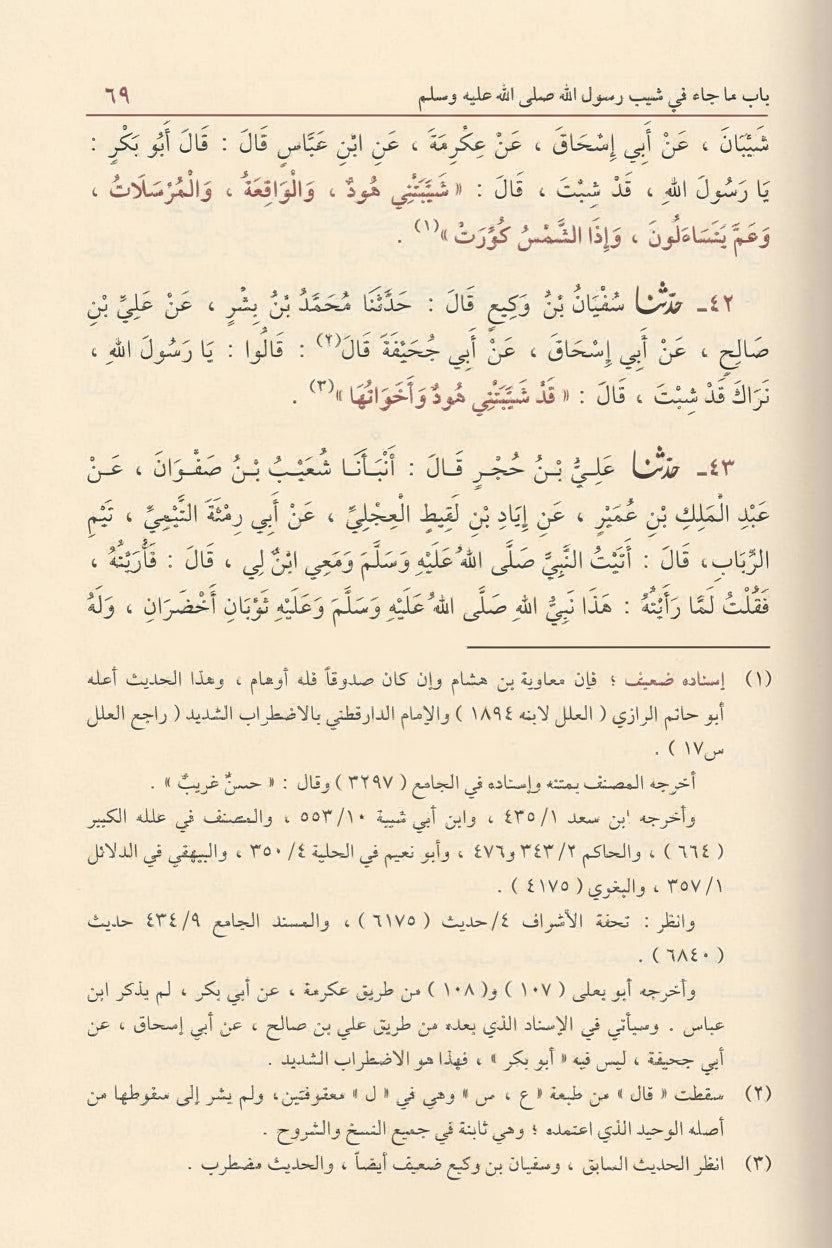 باب ما جاء في شيب رسول الله صلى الله عليه وسلم ٦٩
شَيْبَانَ ، عَنْ أَبِي إِسْحَاقَ ، عَنْ عِكْرِمَةَ ، عَنِ ابْنِ عَبَّاسٍ قَالَ : قَالَ أَبُو بَكْرٍ :
يَا رَسُولَ اللهِ ، قَدْ شِبْتَ ، قَالَ : « شَيَّبَتْنِي هُودٌ ، وَالْوَاقِعَةُ ، وَالْمُرْسَلَاتُ ،
وَعَمَّ يَتَسَاءَلُونَ ، وَإِذَا الشَّمْسُ كُوِّرَتْ »(١) .
٤٢ـ حدّثنا سُفْيَانُ بْنُ وَكِيعٍ قَالَ : حَدَّثَنَا مُحَمَّدُ بْنُ بِشْرٍ ، عَنْ عَلِيِّ بْنِ
صَالِحٍ ، عَنْ أَبِي إِسْحَاقَ ، عَنْ أَبِي جُحَيْفَةَ قَالَ(٢) : قَالُوا : يَا رَسُولَ اللهِ ،
نَرَاكَ قَدْ شِبْتَ ، قَالَ : « قَدْ شَيَّبَتْنِي هُودٌ وَأَخَوَاتُهَا »(٣) .
٤٣ـ حدّثنا عَلِيُّ بْنُ حُجْرٍ قَالَ : أَنْبَأَنَا شُعَيْبُ بْنُ صَفْوَانَ ، عَنْ
عَبْدِ الْمَلِكِ بْنِ عُمَيْرٍ ، عَنِ إِيَادِ بْنِ لَقِيطٍ الْعِجْلِيِّ ، عَنْ أَبِي رِمْثَةَ التَّيْمِيِّ ، تَيْمِ
الرِّبَابِ، قَالَ : أَتَيْتُ النَّبِيَّ صَلَّى اللهُ عَلَيْهِ وَسَلَّمَ وَمَعِي ابْنٌ لِي ، قَالَ : فَأُرِيْتُهُ ،
فَقُلْتُ لَمَّا رَأَيْتُهُ : هَذَا نَبِيُّ اللهِ صَلَّى اللهُ عَلَيْهِ وَسَلَّمَ وَعَلَيْهِ ثَوْبَانِ أَخْضَرَانِ ، وَلَهُ
(١) إسناده ضعيف ؛ فإن معاوية بن هشام وإن كان صدوقاً فله أوهام ، وهذا الحديث أعله
أبو حاتم الرازي ( العلل لابنه ١٨٩٤ ) والإمام الدارقطني بالاضطراب الشديد ( راجع العلل
س١٧ ) .
أخرجه المصنف بمتنه وإسناده في الجامع ( ٣٢٩٧ ) وقال : « حسنٌ غريبٌ » .
وأخرجه ابن سعد ١/ ٤٣٥ ، وابن أبي شيبة ١٠/ ٥٥٣ ، والمصنف في علله الكبير
( ٦٦٤ ) ، والحاكم ٢/ ٣٤٣ و٤٧٦ ، وأبو نعيم في الحلية ٤/ ٣٥٠ ، والبيهقي في الدلائل
١/ ٣٥٧ ، والبغوي ( ٤١٧٥ ) .
وانظر : تحفة الأشراف ٤/ حديث ( ٦١٧٥ ) ، والمسند الجامع ٩/ ٤٣٤ حديث
( ٦٨٤٠ ) .
وأخرجه أبو يعلى ( ١٠٧ ) و( ١٠٨ ) من طريق عكرمة ، عن أبي بكر ، لم يذكر ابن
عباس . وسيأتي في الإسناد الذي بعده من طريق علي بن صالح ، عن أبي إسحاق ، عن
أبي جحيفة ، ليس فيه « أبو بكر » ، فهذا هو الاضطراب الشديد .
(٢) سقطت « قال » من طبعة « ع ، س » وهي في « ل » معقوفتين، ولم يشر إلى سقوطها من
أصله الوحيد الذي اعتمده ؛ وهي ثابتة في جميع النسخ والشروح .
(٣) انظر الحديث السابق ، وسفيان بن وكيع ضعيف أيضاً ، والحديث مضطرب .